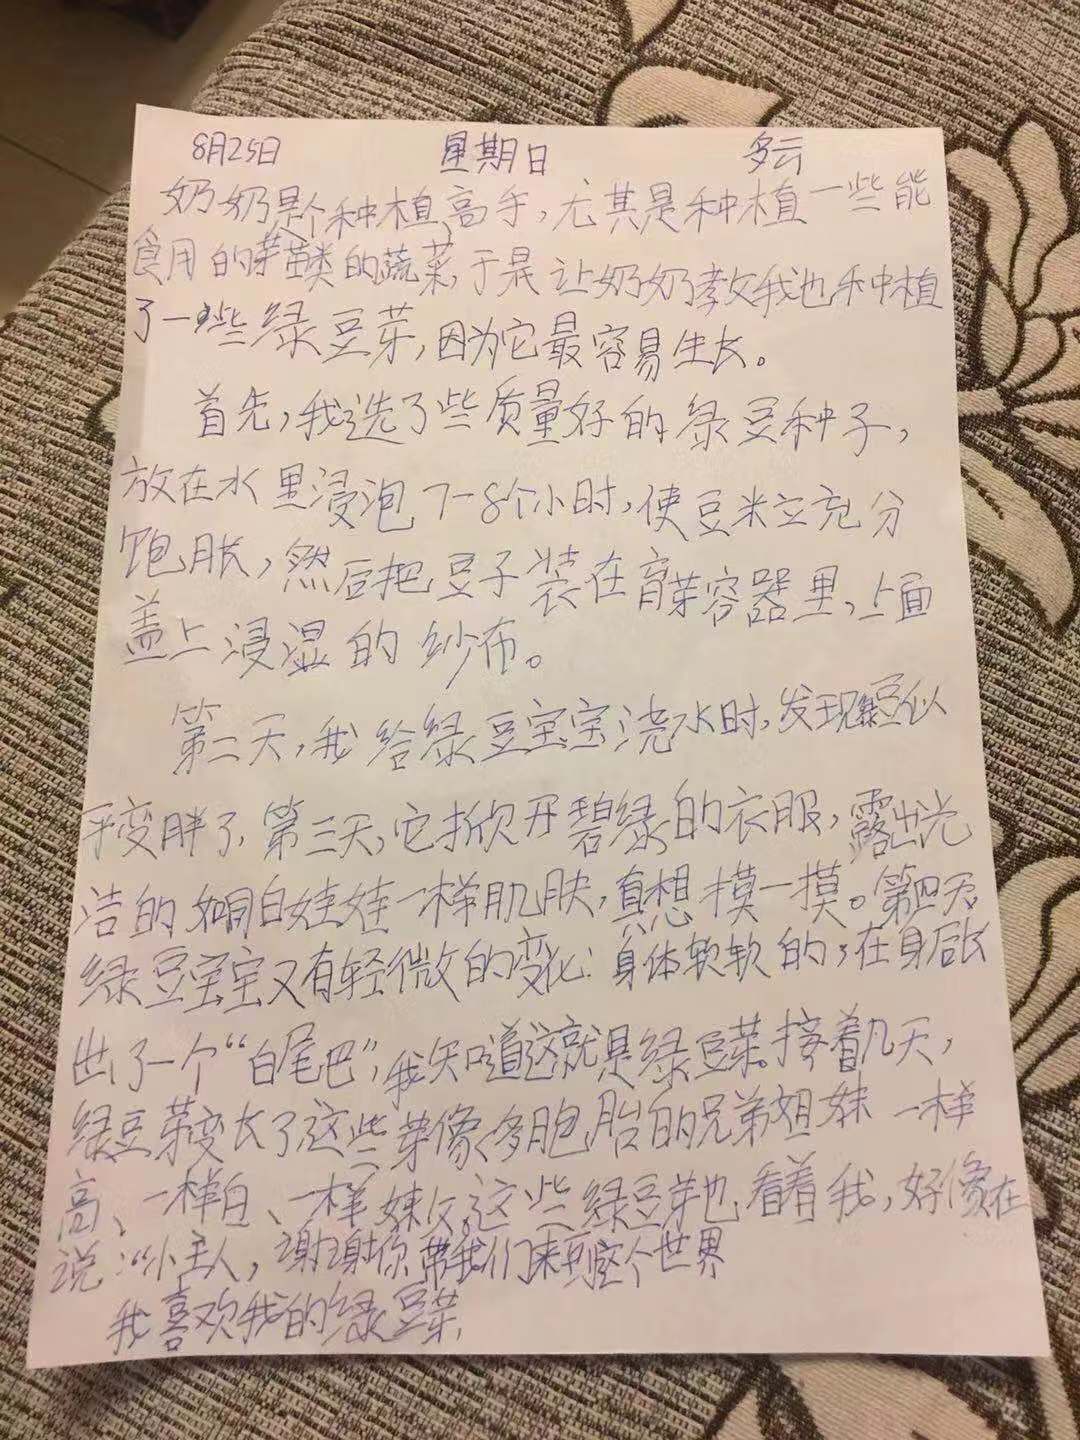 8月25日 星期日 多云
奶奶是个种植高手,尤其是种植一些能
食用的芽苗类的蔬菜,于是让奶奶教我也种植
了一些绿豆芽,因为它最容易生长。
首先,我选了些质量好的绿豆种子,
放在水里浸泡7-8个小时,使豆米立充分
饱胀,然后把豆子装在育芽容器里,上面
盖上浸湿的纱布。
第二天,我给绿豆宝宝浇水时,发现绿豆似
乎变胖了,第三天,它掀开碧绿的衣服,露出光
洁的如同白娃娃一样肌肤,真想摸一摸。第四天,
绿豆宝宝又有轻微的变化:身体软软的,在身后长
出了一个“白尾巴”,我知道这就是绿豆芽。接着几天,
绿豆芽变长了这些芽像多胞胎的兄弟姐妹一样
高、一样白、一样,这些绿豆芽也看着我,好像在
说:“小主人,谢谢你带我们来到这个世界
我喜欢我的绿豆芽,